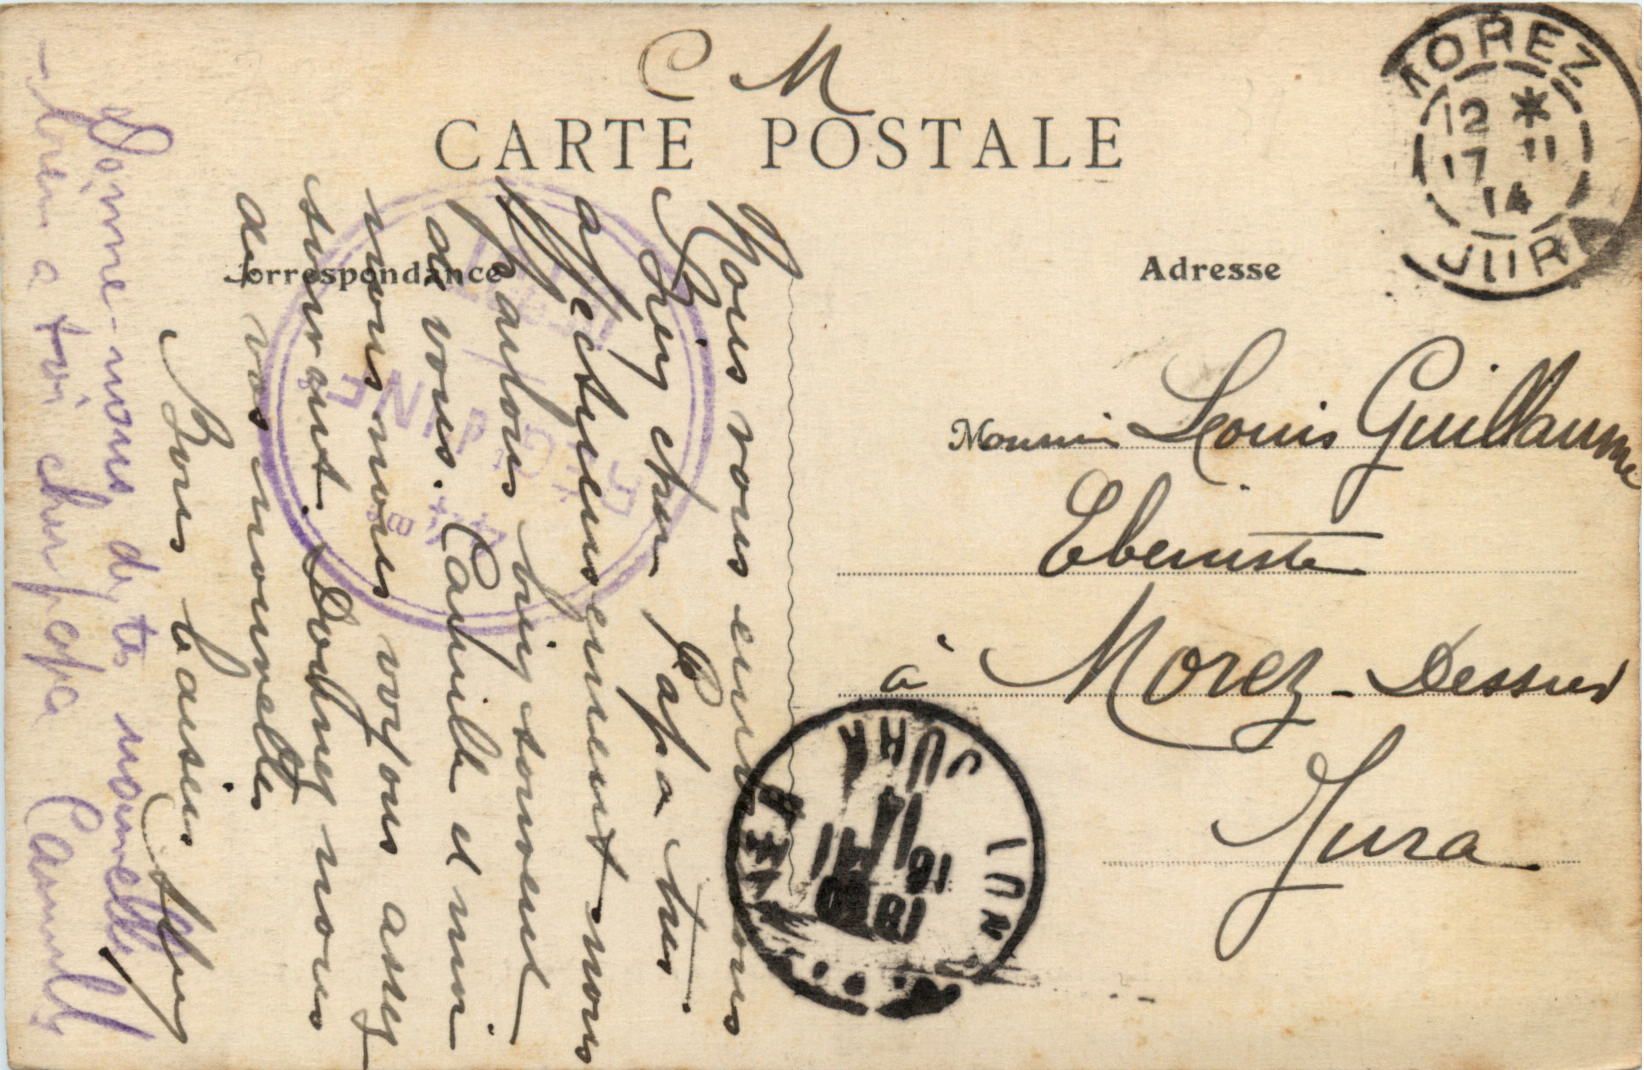 C M
CARTE POSTALE
Correspondance
Adresse
MOREZ
12 *
17 11
14
JURA
Monsieur Louis Guillaume
Ebeniste
à Morez - Dessus
Jura
Nous vous envoyons
Bien cher Papa tres
affectueusement nous
parlons bien souvent
de vous. Camille et moi
nous nous voyons assez
souvent. Donnez nous
de vos nouvelles
Bons baisers
Donne-nous de tes nouvelles
bien a toi cher papa Camille
JURA
14
18 11
18